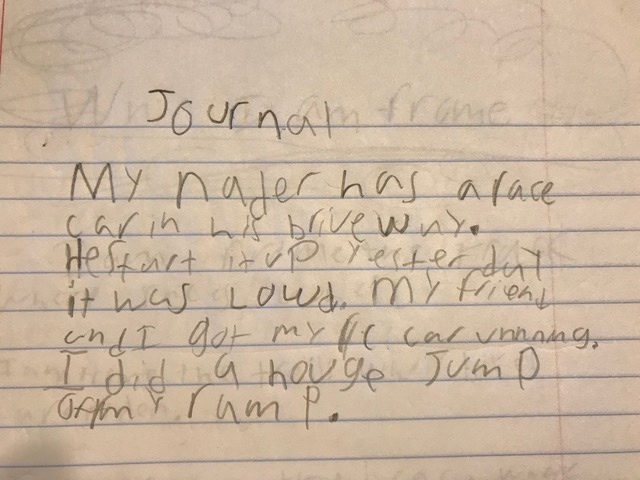 Journal
My nader has a race
car in his briveway.
He start it up yester day
it was Lowd. My friend
and I got my RC car unning.
I did a houge Jump
of my ramp.